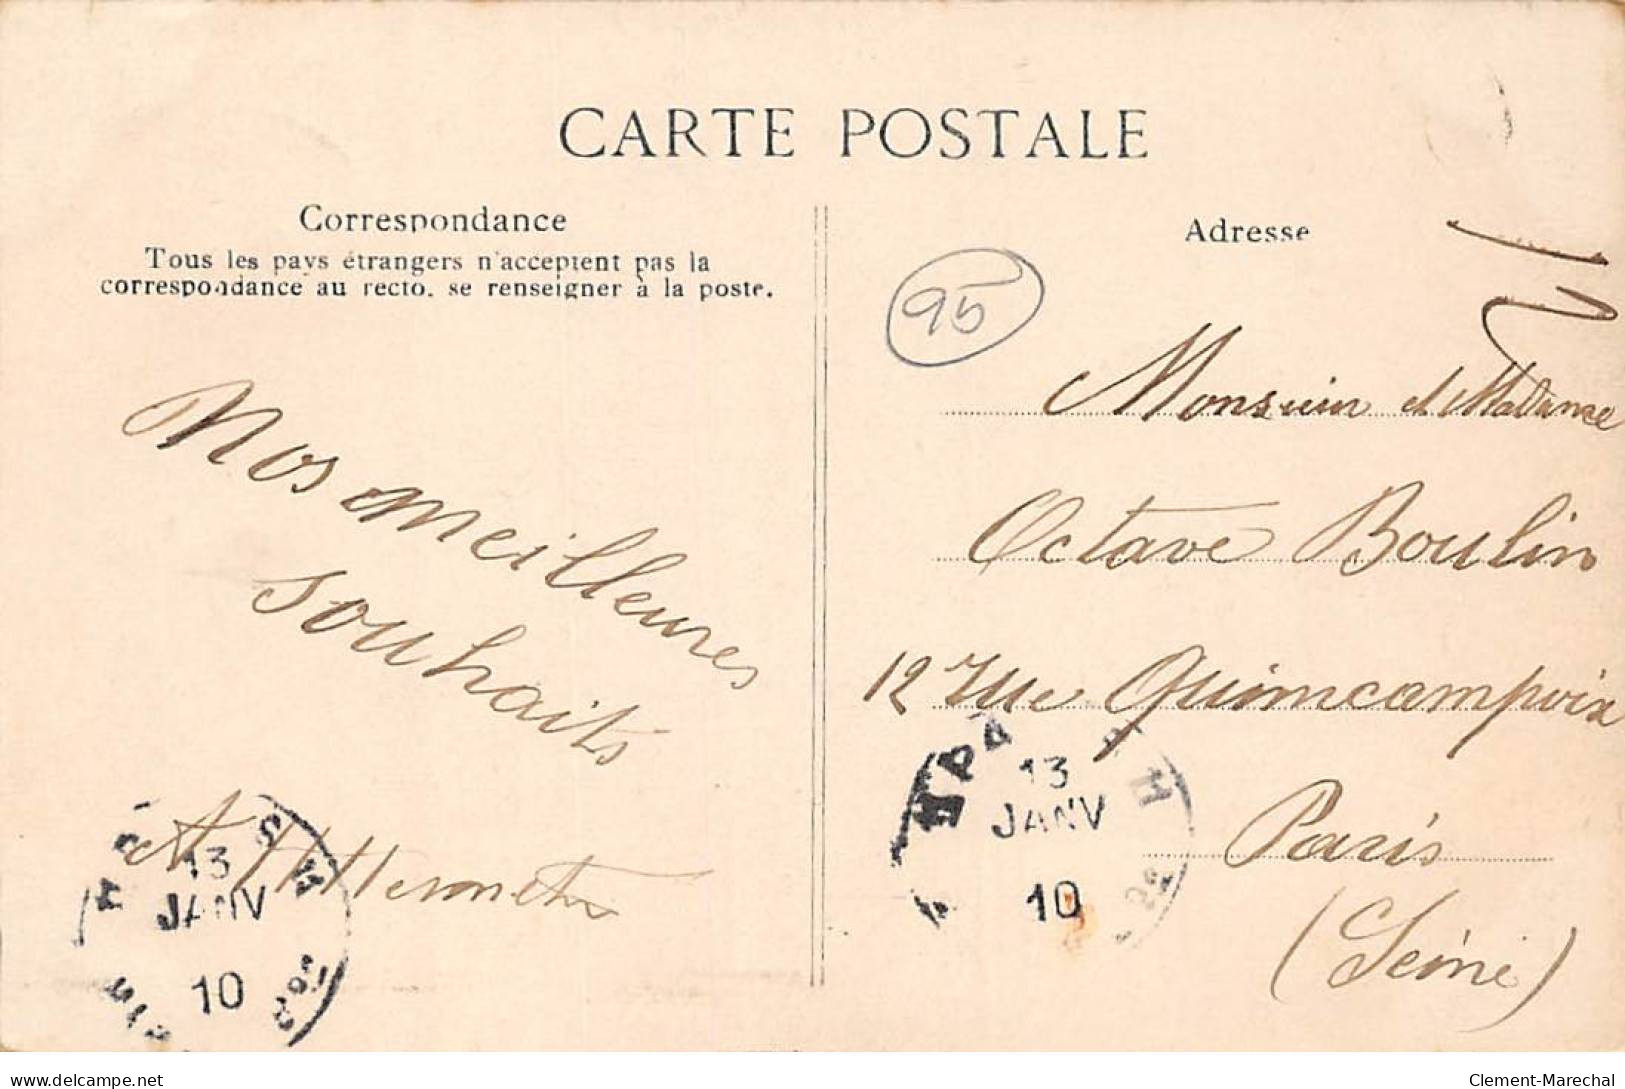 CARTE POSTALE
Correspondance
Tous les pays étrangers n'acceptent pas la
correspondance au recto. se renseigner à la poste.
Nos meilleures
souhaits
Adresse
95
Monsieur et Madame
Octave Boulin
12 rue Quimcampoix
Paris
(Seine)
13
JANV
10
13
JANV
10
delcampe.net
Clement-Marechal